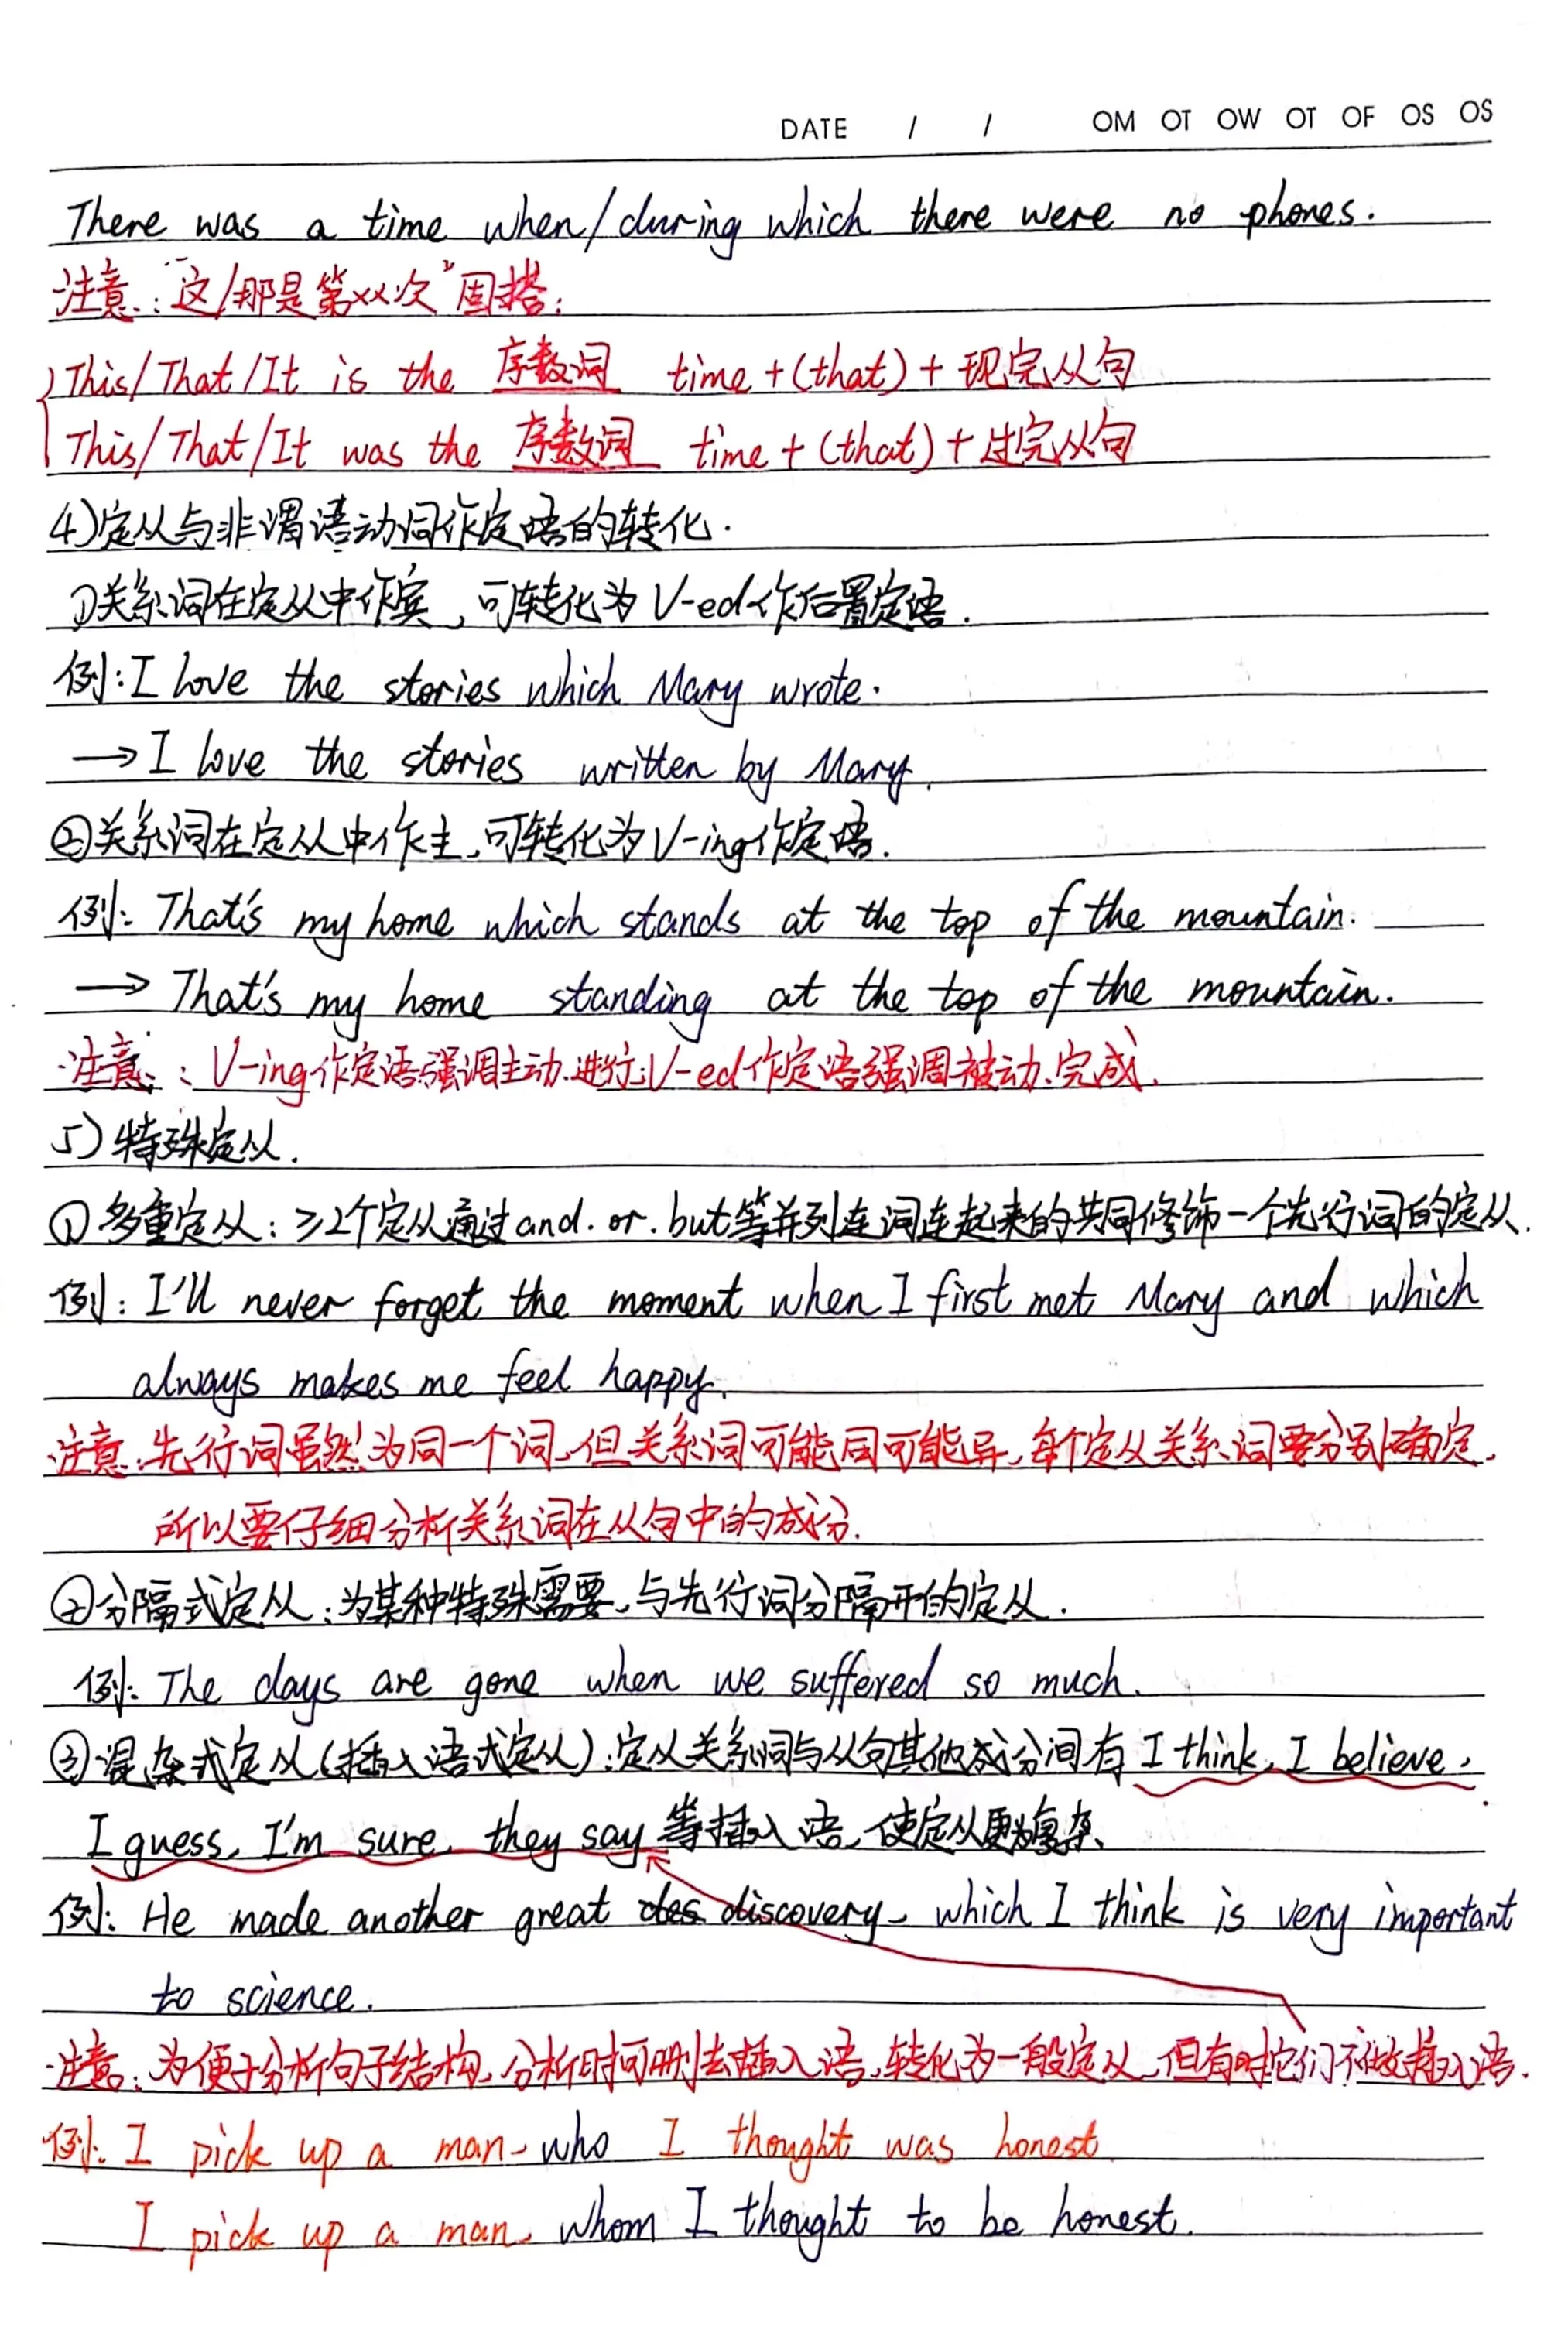 DATE / / OM OT OW OT OF OS OS
There was a time when/during which there were no phones.
注意："这/那是第××次"固搭：
This/That/It is the 序数词 time+(that)+现完从句
This/That/It was the 序数词 time+(that)+过完从句
4)定从与非谓语动词作定语的转化.
①关系词在定从中作宾,可转化为V-ed作后置定语.
例:I love the stories which Mary wrote.
→I love the stories written by Mary.
②关系词在定从中作主,可转化为V-ing作定语.
例: That's my home which stands at the top of the mountain.
→ That's my home standing at the top of the mountain.
注意：V-ing作定语强调主动、进行;V-ed作定语强调被动、完成.
5)特殊定从.
①多重定从:≥2个定从通过and. or. but等并列连词连起来的共同修饰一个先行词的定从.
例: I'll never forget the moment when I first met Mary and which
always makes me feel happy.
注意:先行词虽然为同一个词,但关系词可能同可能异,每个定从关系词要分别确定,
所以要仔细分析关系词在从句中的成分.
②分隔式定从:为某种特殊需要,与先行词分隔开的定从.
例: The days are gone when we suffered so much.
③混杂式定从(插入语式定从):定从关系词与从句其他成分间有I think, I believe,
I guess, I'm sure, they say等插入语,使定从更为复杂.
例: He made another great des discovery, which I think is very important
to science.
注意:为便于分析句子结构,分析时可删去插入语,转化为一般定从,但有时它们不做插入语.
例: I pick up a man, who I thought was honest.
I pick up a man, whom I thought to be honest.